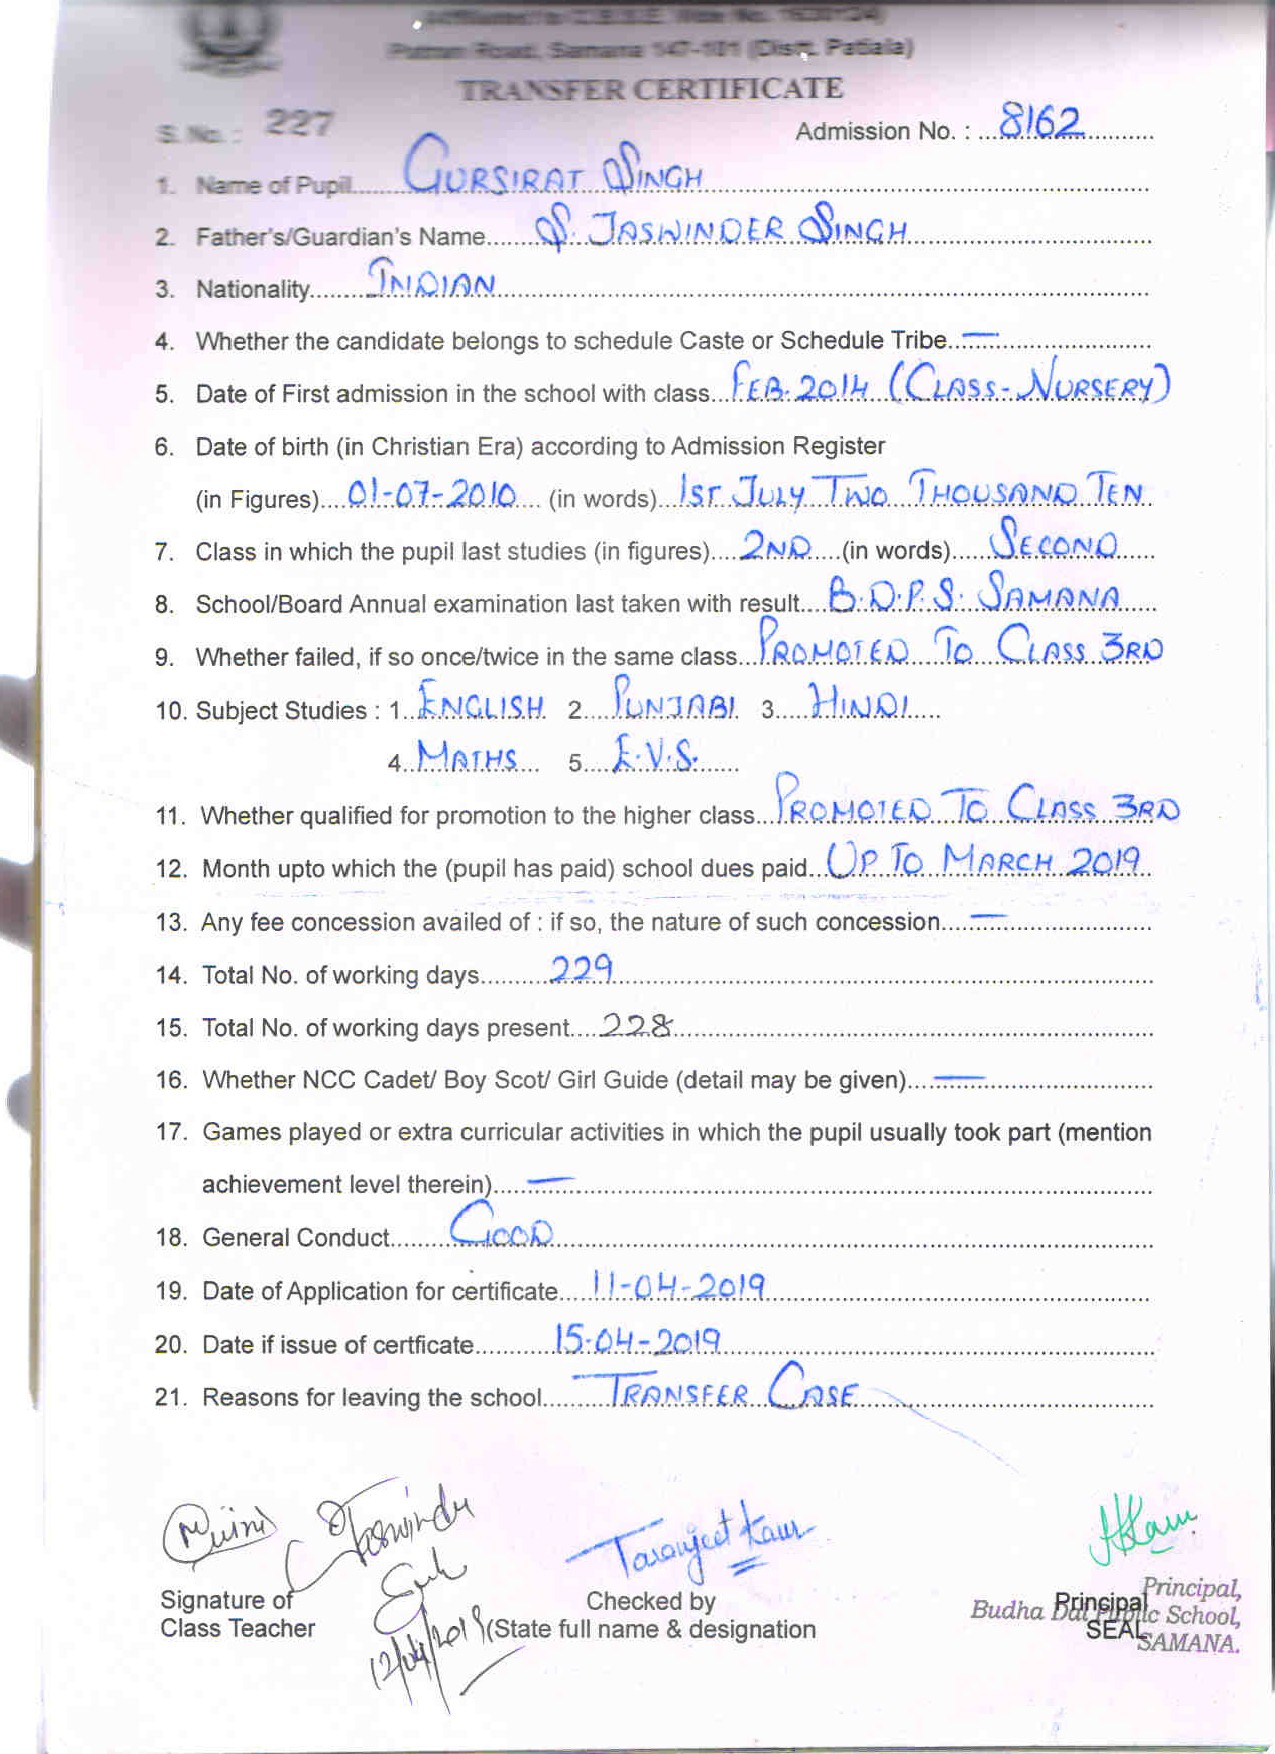 Patran Road, Samana 147-101 (Distt. Patiala)
TRANSFER CERTIFICATE
S. No. : 227 Admission No. : 8162
1. Name of Pupil GURSIRAT SINGH
2. Father's/Guardian's Name S. JASWINDER SINGH
3. Nationality INDIAN
4. Whether the candidate belongs to schedule Caste or Schedule Tribe —
5. Date of First admission in the school with class FEB. 2014 (CLASS-NURSERY)
6. Date of birth (in Christian Era) according to Admission Register
(in Figures) 01-07-2010 (in words) 1ST JULY TWO THOUSAND TEN
7. Class in which the pupil last studies (in figures) 2ND (in words) SECOND
8. School/Board Annual examination last taken with result B.D.P.S. SAMANA
9. Whether failed, if so once/twice in the same class PROMOTED TO CLASS 3RD
10. Subject Studies : 1. ENGLISH 2. PUNJABI 3. HINDI
4. MATHS 5. E.V.S.
11. Whether qualified for promotion to the higher class PROMOTED TO CLASS 3RD
12. Month upto which the (pupil has paid) school dues paid UP TO MARCH 2019
13. Any fee concession availed of : if so, the nature of such concession —
14. Total No. of working days 229
15. Total No. of working days present 228
16. Whether NCC Cadet/ Boy Scot/ Girl Guide (detail may be given) —
17. Games played or extra curricular activities in which the pupil usually took part (mention
achievement level therein) —
18. General Conduct GOOD
19. Date of Application for certificate 11-04-2019
20. Date if issue of certficate 15-04-2019
21. Reasons for leaving the school TRANSFER CASE
Taranjeet Kaur
Signature of Checked by Principal Principal,
Class Teacher (State full name & designation SEAL Budha Dal Public School,
SAMANA.